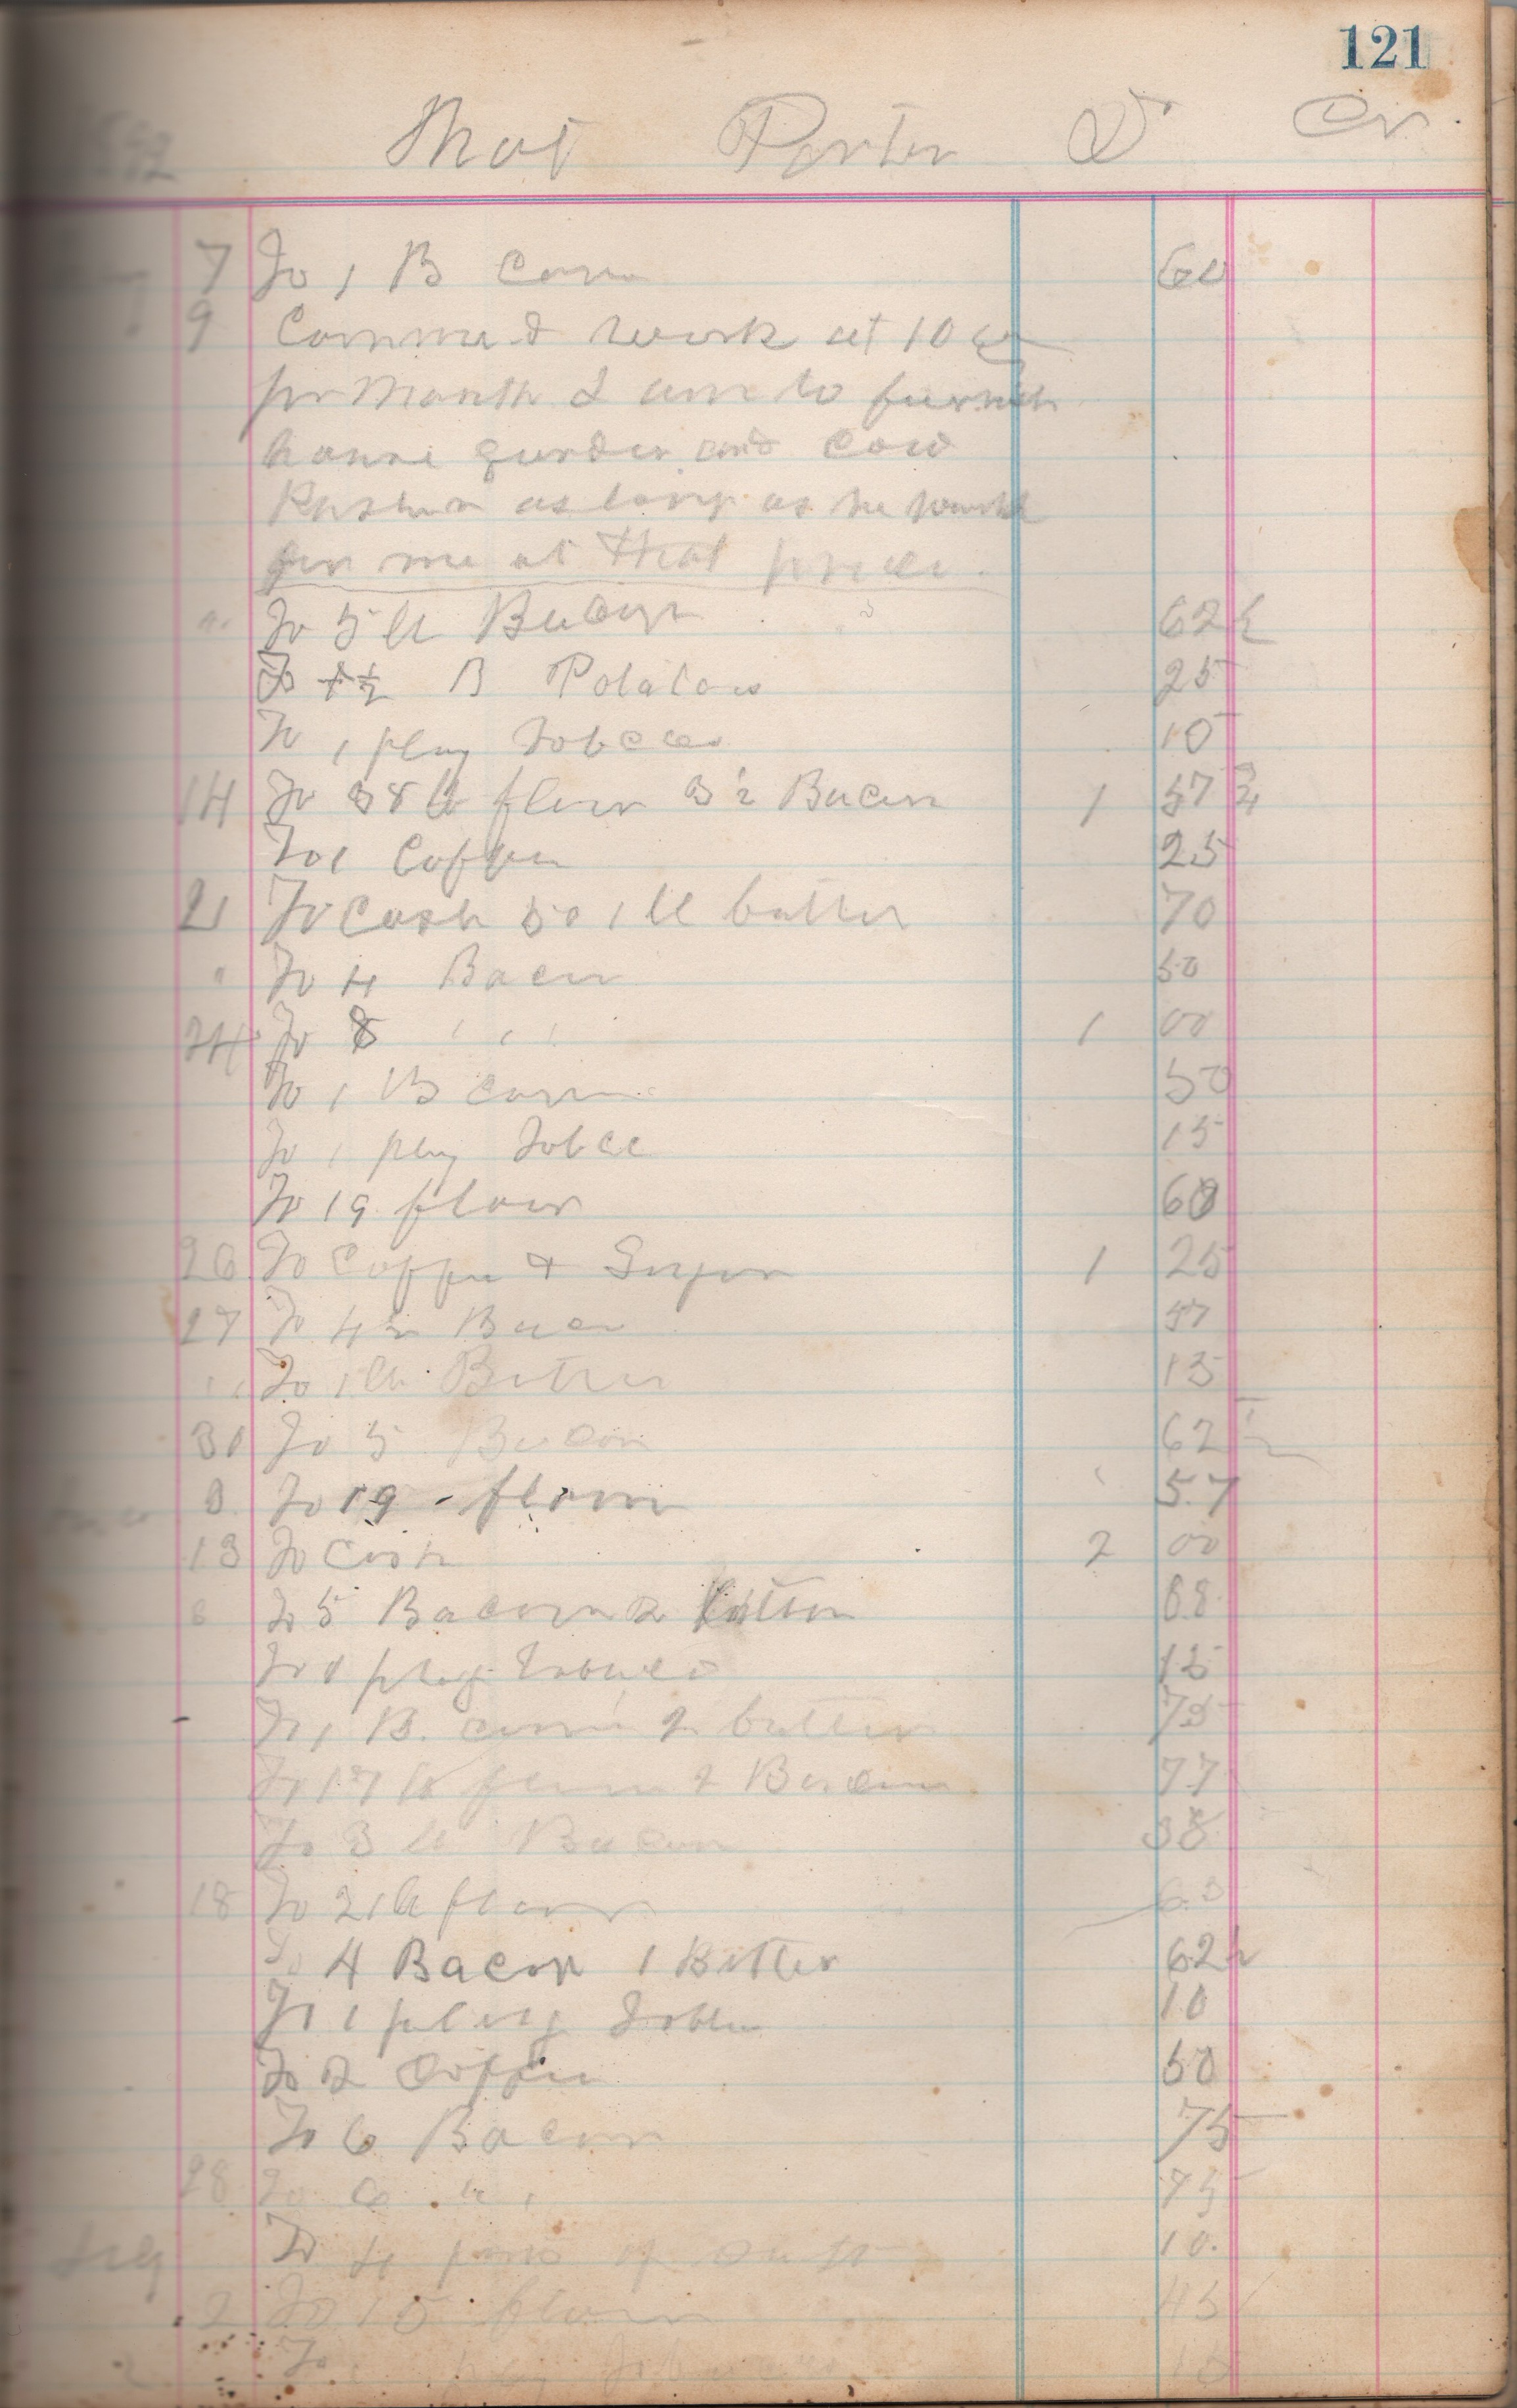 121
Mat Porter Dr Cr.
7 To 1 B Corn 60
9 Commed work at 10
pr Month I am to furnish
house garden and Cow
as long as he works
for me at that price.
" To 5 lb Bacon 62 ½
To ½ B Potatoes 25
To 1 plug Tobacco 10
14 To 38 lb flour 3 ½ Bacon 1 57 ¾
To 1 Coffee 25
21 To Cash 50 1 lb butter 70
" To 4 Bacon 50
24 To 8 " " " 1 00
To 1 B corn 50
To 1 plug Tobac 15
To 19 flour 60
26 To Coffee & Sugar 1 25
27 To 4 ½ Bacon 57
" To 1 lb Butter 15
31 To 5 Bacon 62 ½
8 To 19 - flour 57
13 To Cash 2 00
6 To 5 Bacon 2 88
To 1 plug Tobacco 15
To 1 B. corn 2 butter 75
To 17 lb flour 2 Bacon 77
To 3 lb Bacon 38
18 To 21 lb flour 63
To 4 Bacon 1 Butter 62 ½
To 1 plug Tobac 10
To 2 Coffee 50
To 6 Bacon 75
28 To 6 " " 75
To 10.
2 To 15 flour 45
To 1 plug Tobacco 10